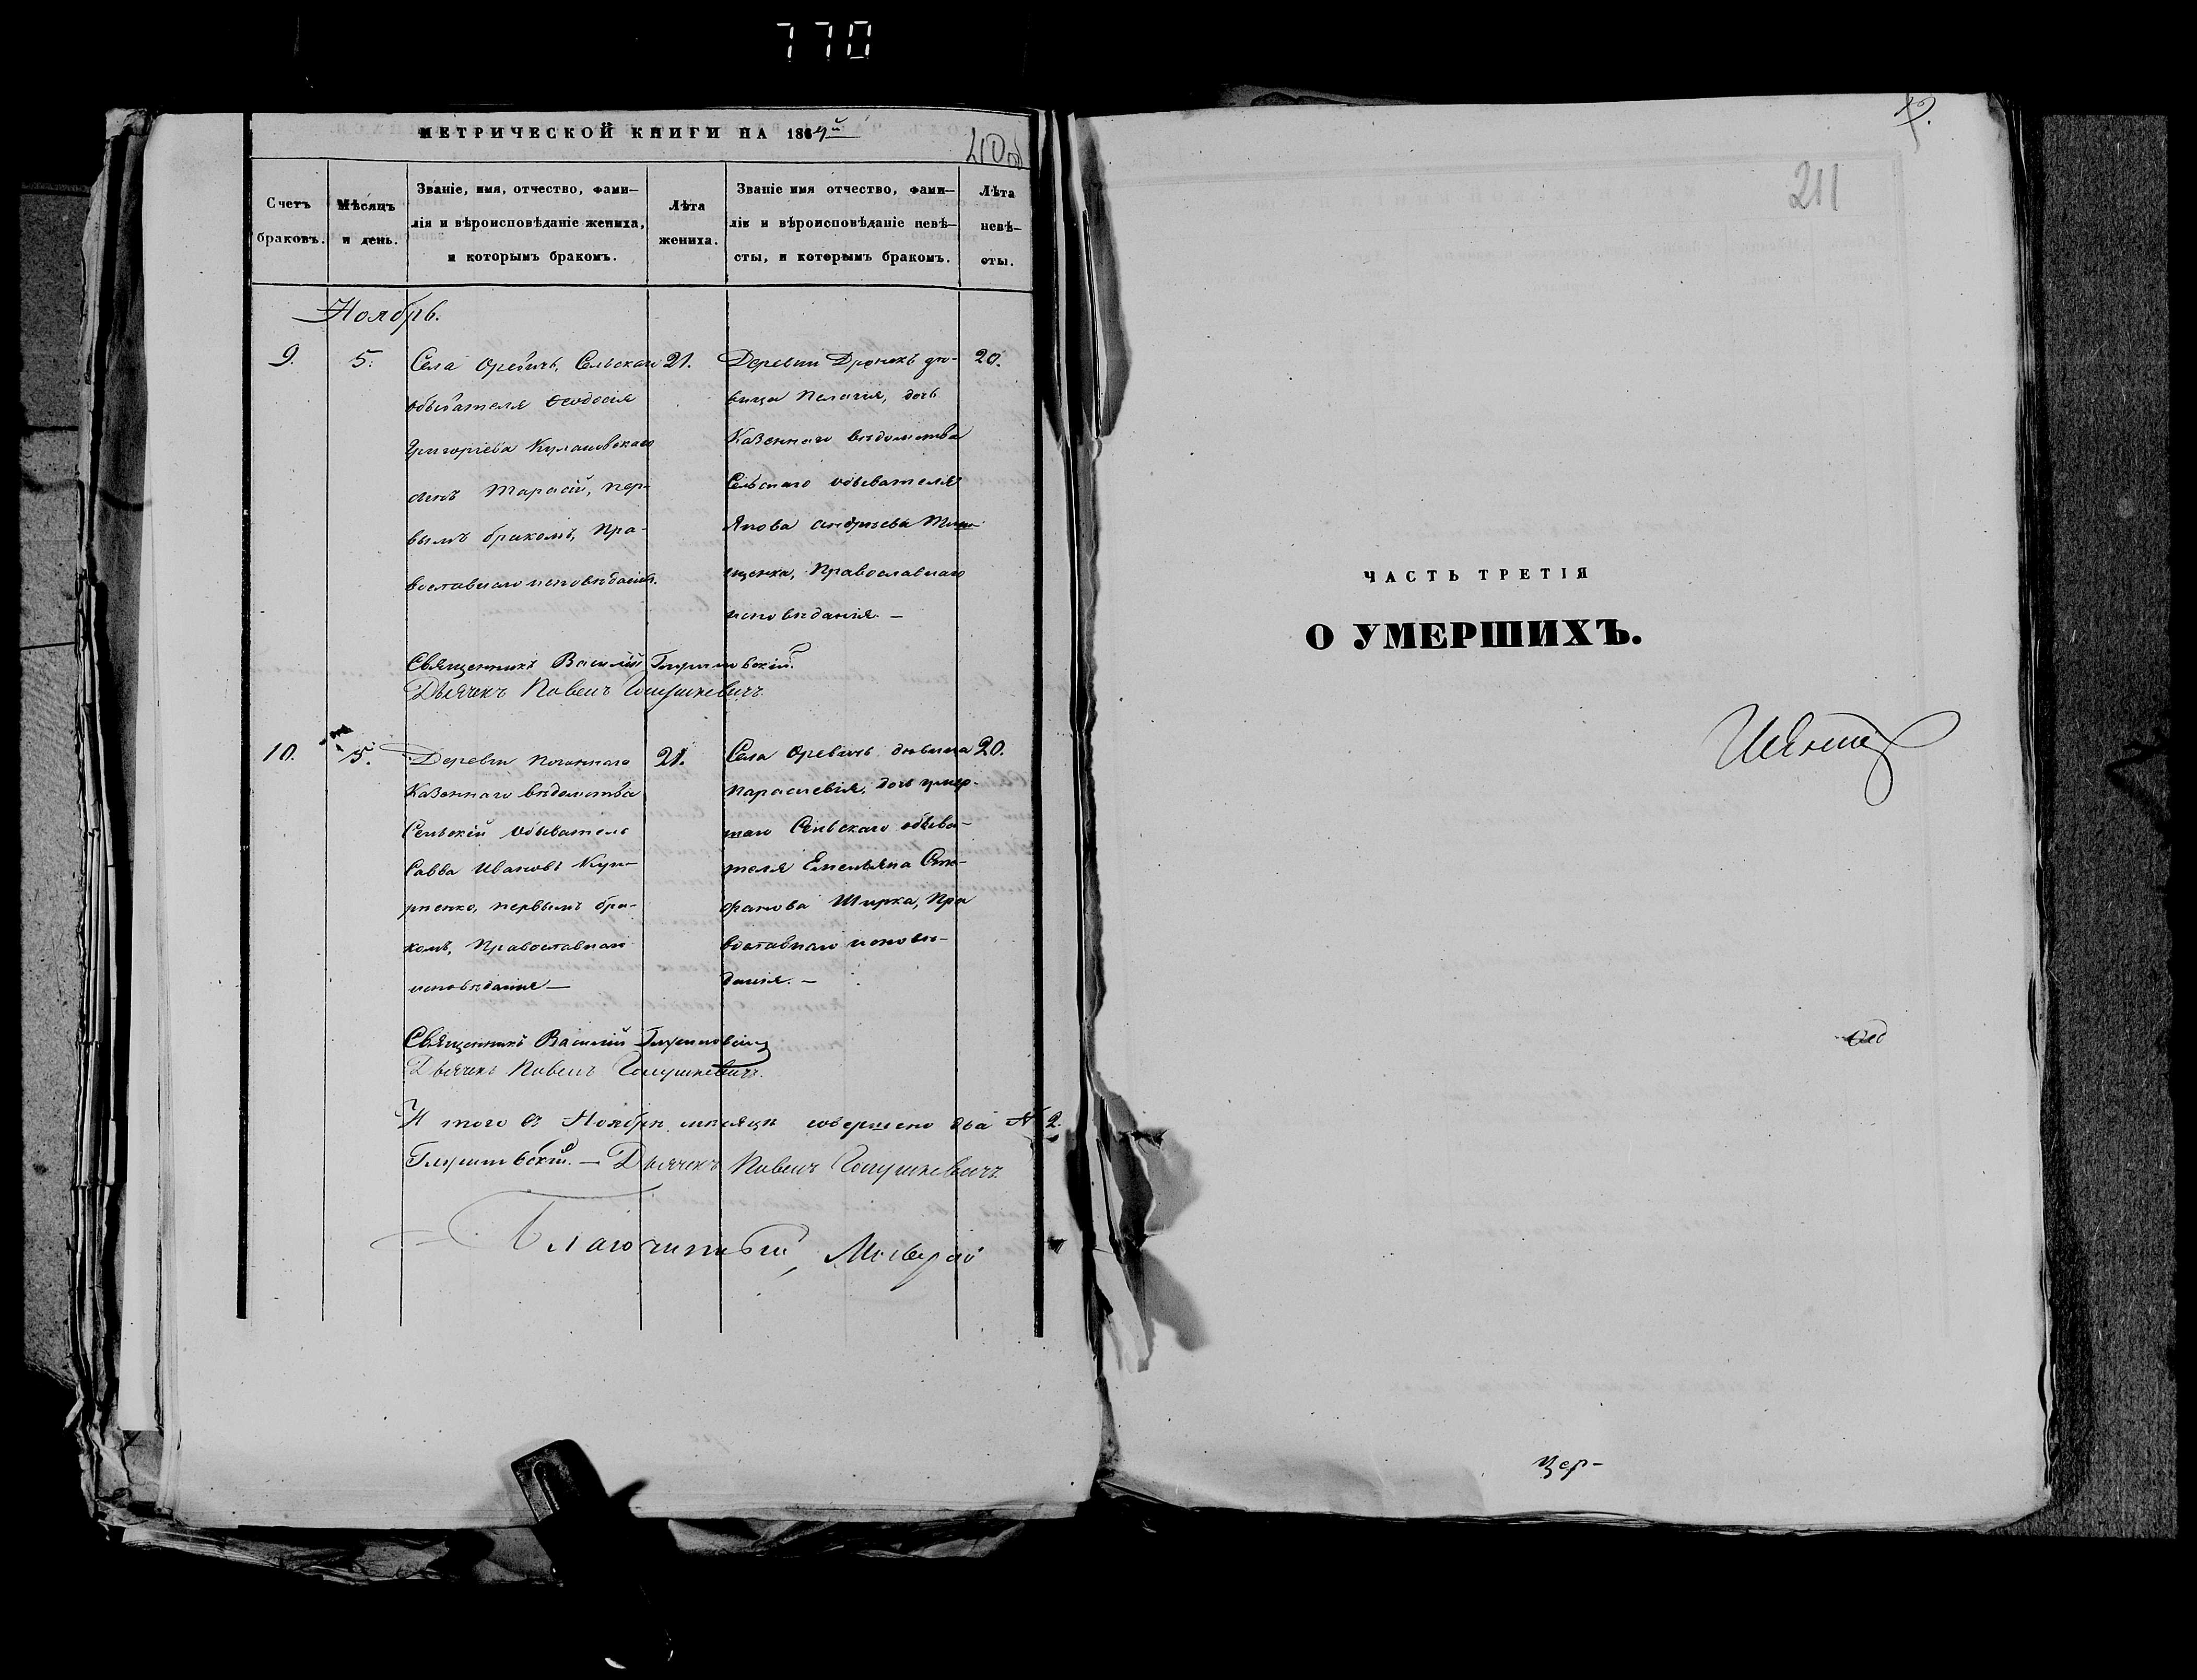 770
МЕТРИЧЕСКОЙ КНИГИ НА 1864й
210об
Счетъ браковъ.
Мѣсяцъ и день.
Званіе, имя, отчество, фами-
лія и вѣроисповѣданіе жениха,
и которымъ бракомъ.
Лѣта жениха.
Званіе имя отчество, фами-
лія и вѣроисповѣданіе невѣ-
сты, и которымъ бракомъ.
Лѣта невѣ-
сты.
Ноябрь.
9.
5.
Села Оревичь, Сельскаго
обывателя Ѳеодосія
Григорьева Кулаковскаго
сынъ Тарасій, пер-
вымъ бракомъ, Пра-
вославнаго исповѣданія.
21.
Деревни Дронекъ дѣ-
вица Пелагія, дочь
Казеннаго вѣдомства
Сельскаго обывателя
Якова Андреева
щенка, Православнаго
исповѣданія. —
20.
Священникъ Василій
Дьячекъ Павелъ
10.
5.
Деревни Погоннаго
Казеннаго вѣдомства
Сельскій обыватель
Савва Ивановъ Кур-
риенко, первымъ бра-
комъ, Православнаго
исповѣданія —
21.
Села Оревичь дѣвица
Параскевія, дочь умер-
шаго Сельскаго обыва-
теля Емельяна Сте-
фанова Шурка, Пра
вославнаго исповѣ-
данія. —
20.
Священникъ Василій
Дьячекъ Павелъ
И того въ Ноябрѣ мѣсяцѣ совершено два № 2.
Дьячекъ Павелъ
Благочинный
211
ЧАСТЬ ТРЕТІЯ
О УМЕРШИХЪ.
Цер-